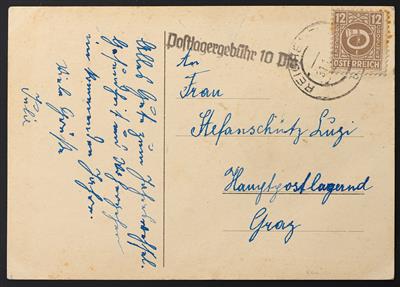 Alles Gute zum Jahreswechsel
Gesundheit und Wohlergehen
im kommenden Jahre.
Viele Grüße
Postlagergebühr 10 Pfg
12 12
ÖSTERREICH
An
Frau
Stefanschütz Luzi
Hauptpostlagernd
Graz